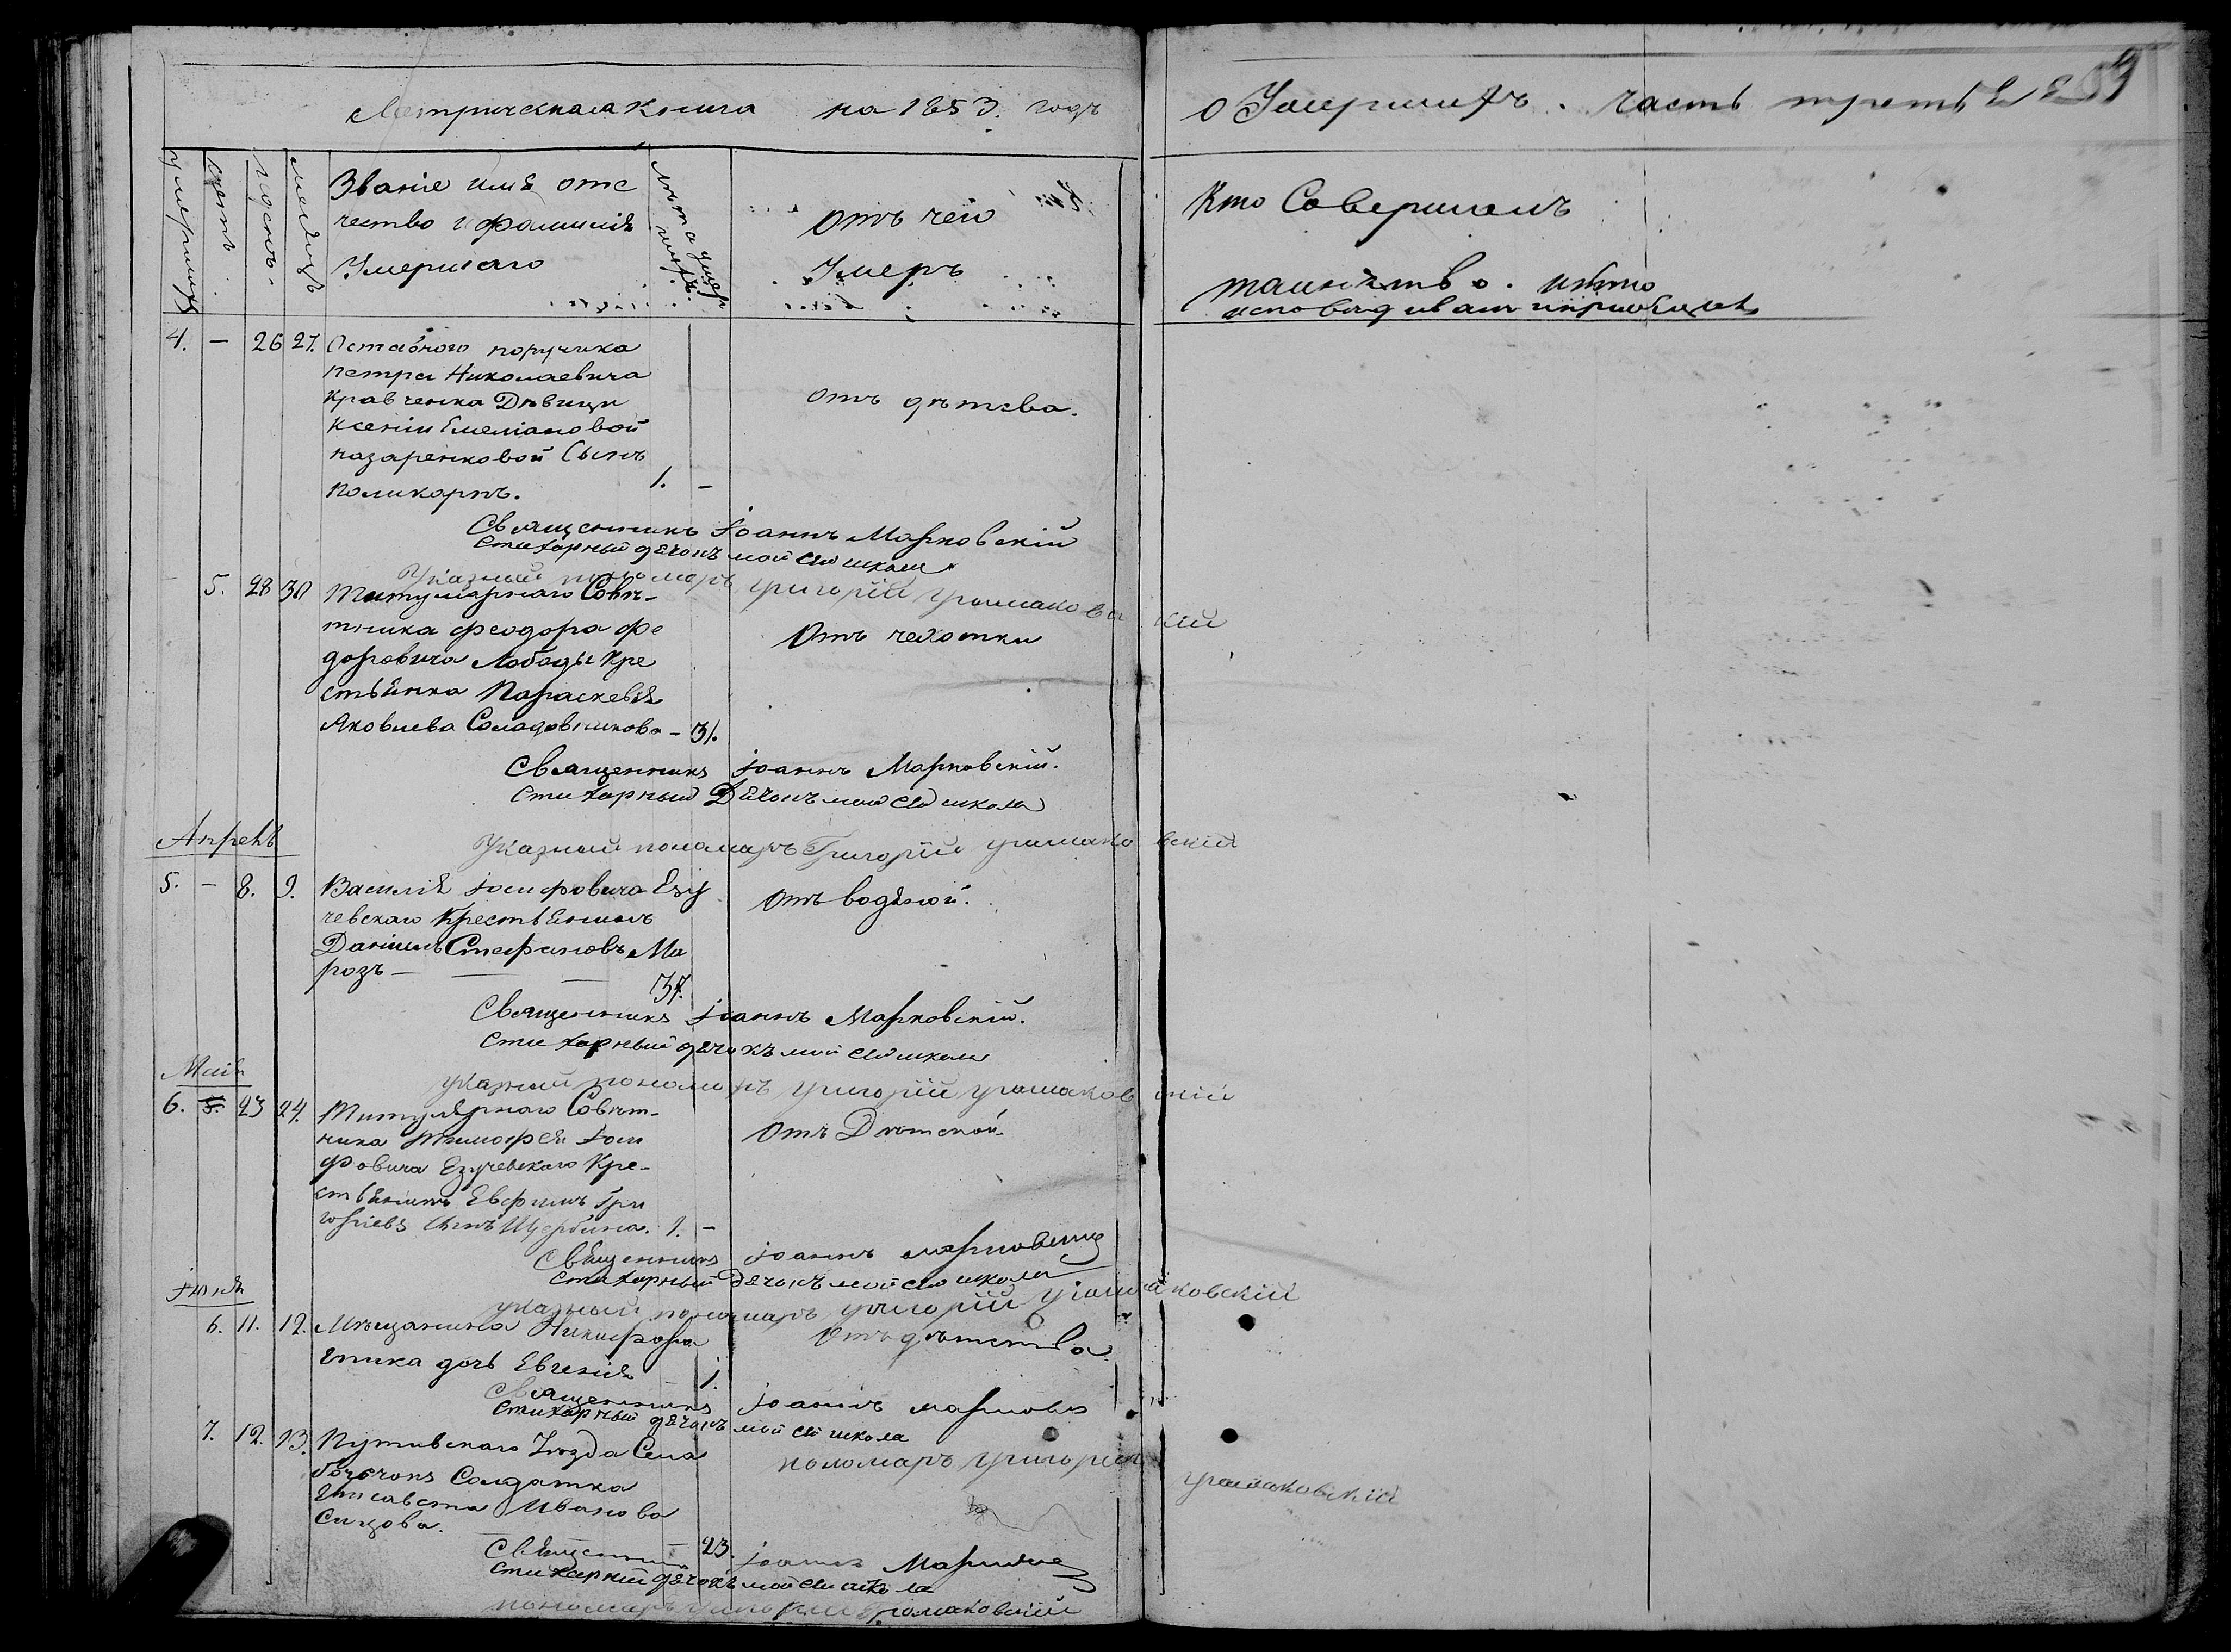 Метрическая книга на 1853. годъ
о Умершихъ. часть третья
умершихъ
счетъ
числъ.
мѣсяцъ
Званіе имя отс
чество и фамилія
Умершаго
лѣта умер
шихъ.
Отъ чего
Умеръ
Кто Совершалъ
таинство. и кто
исповѣдивалъ и пріобщалъ
4. - 26 27. Оставного поручика
петра Николаевича
Кравченка Дѣвици
Ксеніи Емеліановой
назаренковой Сынъ
Поликарпъ. 1. -
Отъ дѣтсва.
Священникъ Іоаннъ Марковскій
Стихарный дячокъ
Указный пономаръ григорій громаковскій
5. 28 30 Титулярнаго Совѣ-
тника Феодора Фе
доровича Лободы Кре
стьянка Параскевія
Яковлева Соладовникова - 31.
Отъ чехотки
Священникъ Іоаннъ Марковскій.
Стихарный Дячокъ
Указный пономаръ Григорій громаковскій
Апрель
5. - 8. 9. Василія Іосифовича Езу
чевскаго Крестьянинъ
Даніилъ Стефановъ Мо
розъ - 37.
Отъ водяной.
Священникъ Іоаннъ Марковскій.
Стихарный дячокъ
указный пономаръ григорій громаковскій
Май
6. 5. 23 24. Титулярнаго Совѣт-
ника Тимофея Іоси
фовича Езучевскаго Кре-
стьянинъ Евфимъ Гри
горіевъ Сынъ Щербина. 1. -
Отъ Дѣтской
Священникъ Іоаннъ
Стихарный Дячокъ
указный пономаръ григорій громаковскій
Іюнь
6. 11. 12. Мѣщанина Никифора
дочь Евгенія - 1.
Отъ дѣтства.
Священникъ Іоаннъ
Стихарный дячокъ
пономаръ григорій громаковскій
7. 12. 13. Путивскаго Уѣзда Села
Солдатка
Елисавета Иванова
Сицова. - 23.
Священникъ Іоаннъ
Стихарный дячокъ
пономаръ григорій громаковскій